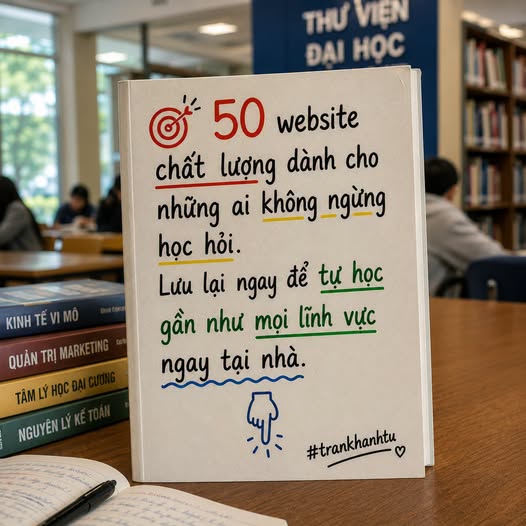 THƯ VIỆN
ĐẠI HỌC
50 website
chất lượng dành cho
những ai không ngừng
học hỏi.
Lưu lại ngay để tự học
gần như mọi lĩnh vực
ngay tại nhà.
#trankhanhtu
KINH TẾ VI MÔ
QUẢN TRỊ MARKETING
TÂM LÝ HỌC ĐẠI CƯƠNG
NGUYÊN LÝ KẾ TOÁN